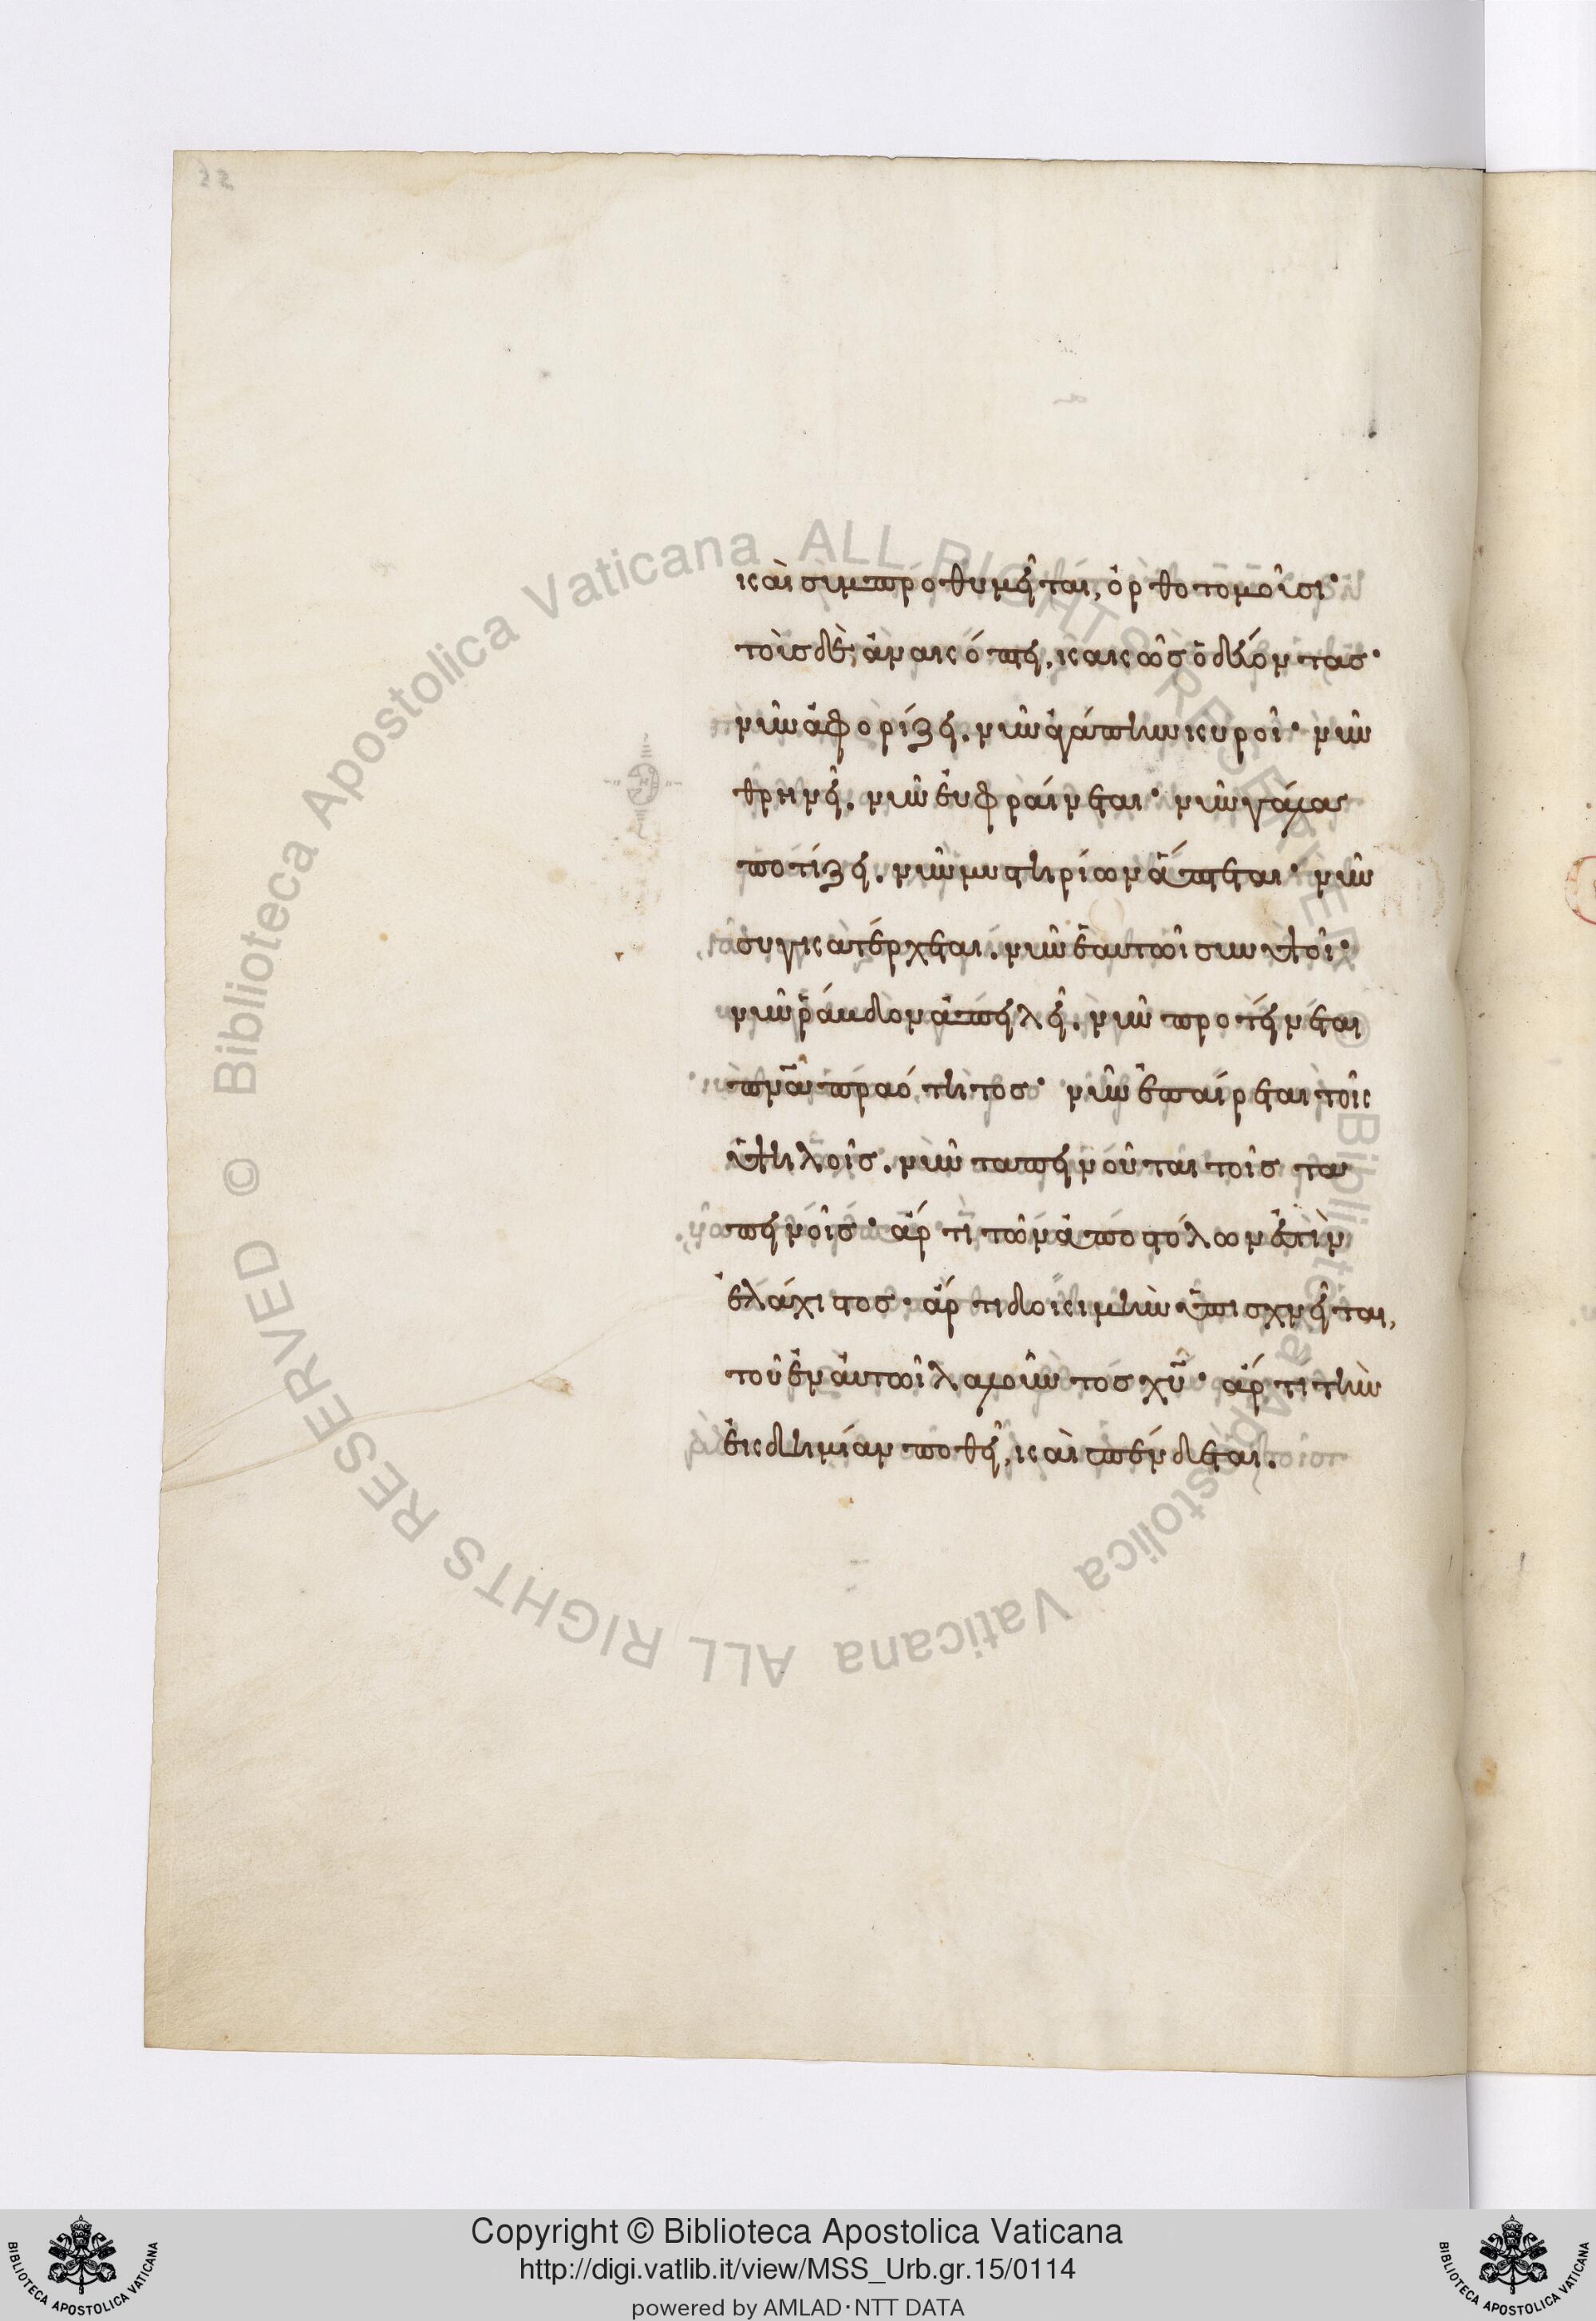 καὶ συμπροθυμεῖται, ὀρθοτομοῦσι·
τοῖς δὲ, ἀνακόπτει, κακῶς ὁδεύοντας·
νῦν ἀφορίζει. νῦν ἀγάπην κυροῖ· νῦν
θρηνεῖ. νῦν εὐφραίνεται· νῦν γάλα
ποτίζει. νῦν μυστηρίων ἅπτεται· νῦν
συγκατέρχεται. νῦν ἑαυτῶι συνυψοῖ·
νῦν ῥάβδον ἀπειλεῖ. νῦν προτείνεται
πνᾶ πραότητος· νῦν ἐπαίρεται τοῖς
ὑψηλοῖς. νῦν ταπεινοῦται τοῖς τα
πεινοῖς· ἄρτι τῶν ἀποστόλων ἐστὶν
ἐλάχιστος· ἄρτι δοκιμὴν ὑπισχνεῖται,
τοῦ ἐν αὐτῶι λαλοῦντος χυ· ἄρτι τὴν
ἐκδημίαν ποθεῖ, καὶ σπένδεται.
Copyright © Biblioteca Apostolica Vaticana
http://digi.vatlib.it/view/MSS_Urb.gr.15/0114
powered by AMLAD·NTT DATA
© Biblioteca Apostolica Vaticana ALL RIGHTS RESERVED
© Biblioteca Apostolica Vaticana ALL RIGHTS RESERVED
BIBLIOTECA APOSTOLICA VATICANA
BIBLIOTECA APOSTOLICA VATICANA